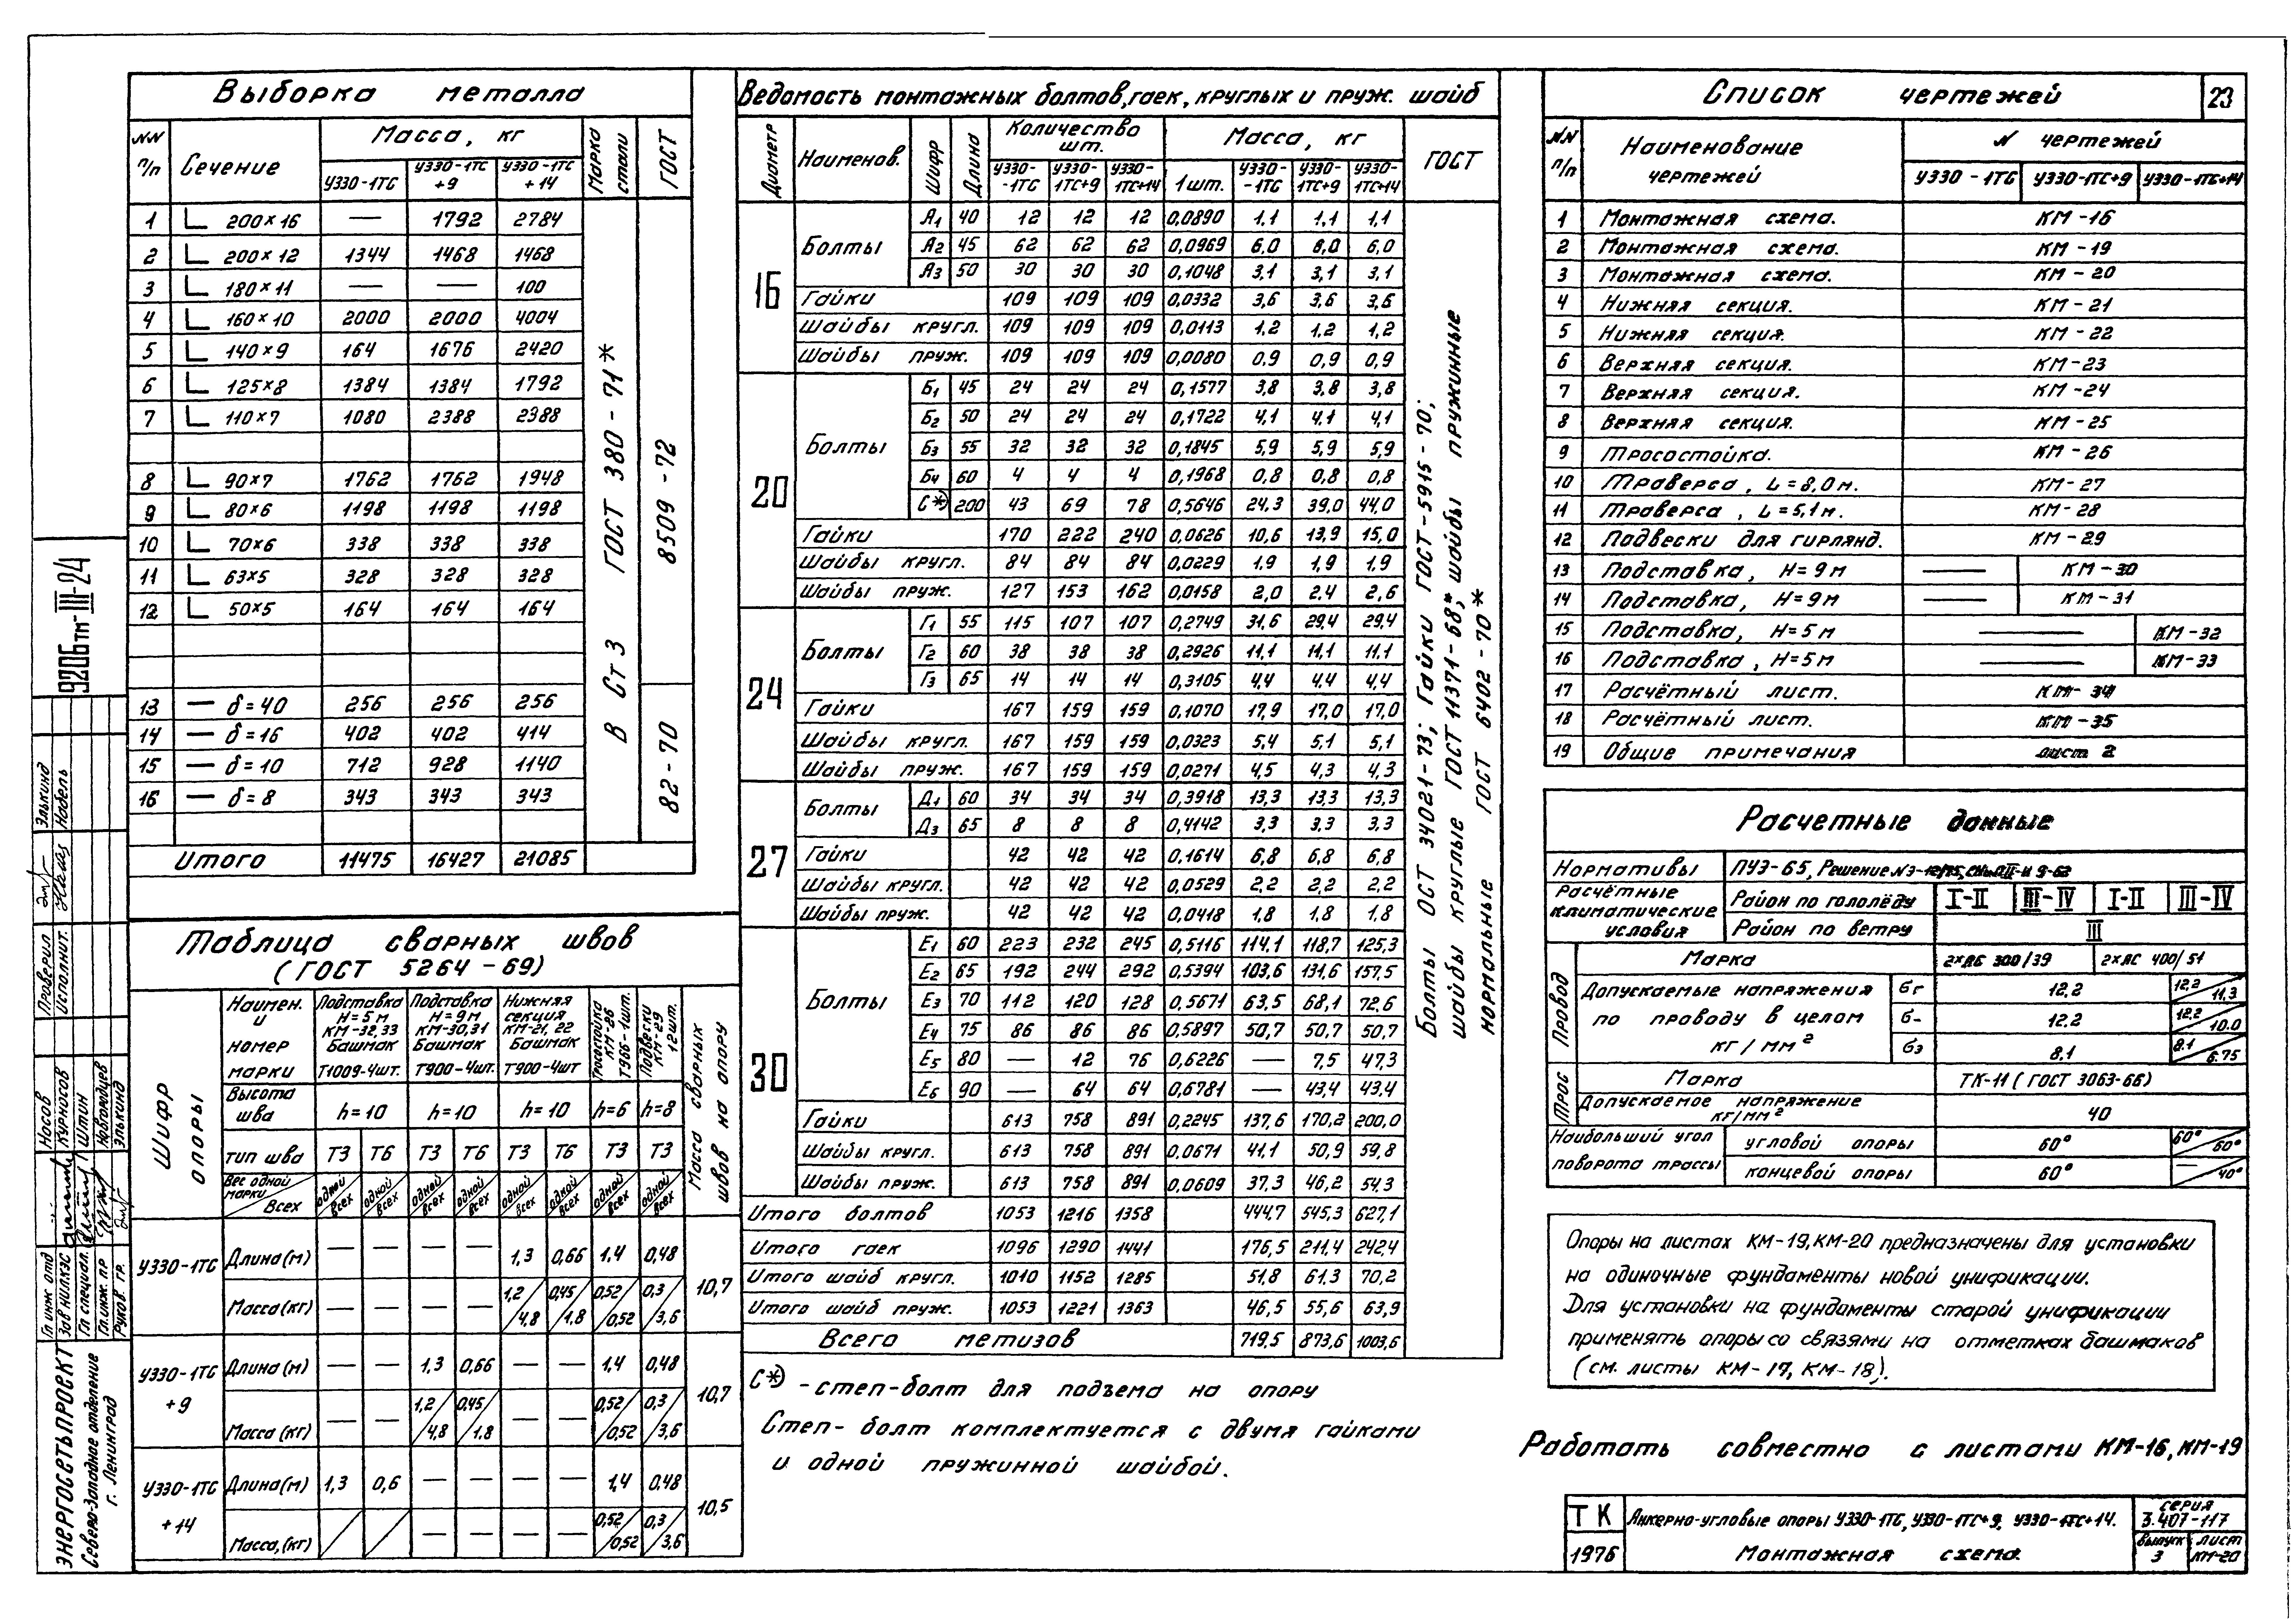 Выборка металла
NN п/п | Сечение | Масса, кг | Марка стали | ГОСТ
У330-1ТС | У330-1ТС +9 | У330-1ТС +14
1 | L 200×16 | — | 1792 | 2784
2 | L 200×12 | 1344 | 1468 | 1468
3 | L 180×11 | — | — | 100
4 | L 160×10 | 2000 | 2000 | 4004
5 | L 140×9 | 164 | 1676 | 2420
6 | L 125×8 | 1384 | 1384 | 1792
7 | L 110×7 | 1080 | 2388 | 2388
8 | L 90×7 | 1762 | 1762 | 1948
9 | L 80×6 | 1198 | 1198 | 1198
10 | L 70×6 | 338 | 338 | 338
11 | L 63×5 | 328 | 328 | 328
12 | L 50×5 | 164 | 164 | 164
13 | — δ=40 | 256 | 256 | 256
14 | — δ=16 | 402 | 402 | 414
15 | — δ=10 | 712 | 928 | 1140
16 | — δ=8 | 343 | 343 | 343
Итого | 11475 | 16427 | 21085
В Ст 3 ГОСТ 380-71*
8509-72
82-70
Таблица сварных швов
(ГОСТ 5264-69)
Шифр опоры
Наимен. и номер марки | Подставка H=5м КМ-32,33 Башмак Т1009-4шт. | Подставка H=9м КМ-30,31 Башмак Т900-4шт. | Нижняя секция КМ-21,22 Башмак Т900-4шт | Тросостойка КМ-26 Т966-1шт. | Подвески КМ-29 12шт. | Масса сварных швов на опору
Высота шва | h=10 | h=10 | h=10 | h=6 | h=8
тип шва | Т3 | Т6 | Т3 | Т6 | Т3 | Т6 | Т3 | Т3
Вес одной марки / Всех | одной/всех | одной/всех | одной/всех | одной/всех | одной/всех | одной/всех | одной/всех | одной/всех
У330-1ТС | Длина(м) | — | — | — | — | 1,3 | 0,66 | 1,4 | 0,48 | 10,7
Масса(кг) | — | — | — | — | 1,2/4,8 | 0,45/1,8 | 0,52/0,52 | 0,3/3,6
У330-1ТС +9 | Длина(м) | — | — | 1,3 | 0,66 | — | — | 1,4 | 0,48 | 10,7
Масса(кг) | — | — | 1,2/4,8 | 0,45/1,8 | — | — | 0,52/0,52 | 0,3/3,6
У330-1ТС +14 | Длина(м) | 1,3 | 0,6 | — | — | — | — | 1,4 | 0,48 | 10,5
Масса,(кг) | / | / | — | — | — | — | 0,52/0,52 | 0,3/3,6
Ведомость монтажных болтов, гаек, круглых и пруж. шайб
Диаметр | Наименов. | Шифр | Длина | Количество шт. | Масса, кг | ГОСТ
У330-1ТС | У330-1ТС+9 | У330-1ТС+14 | 1шт. | У330-1ТС | У330-1ТС+9 | У330-1ТС+14
16
Болты | А1 | 40 | 12 | 12 | 12 | 0,0890 | 1,1 | 1,1 | 1,1
А2 | 45 | 62 | 62 | 62 | 0,0969 | 6,0 | 6,0 | 6,0
А3 | 50 | 30 | 30 | 30 | 0,1048 | 3,1 | 3,1 | 3,1
Гайки | 109 | 109 | 109 | 0,0332 | 3,6 | 3,6 | 3,6
Шайбы кругл. | 109 | 109 | 109 | 0,0113 | 1,2 | 1,2 | 1,2
Шайбы пруж. | 109 | 109 | 109 | 0,0080 | 0,9 | 0,9 | 0,9
20
Болты | Б1 | 45 | 24 | 24 | 24 | 0,1577 | 3,8 | 3,8 | 3,8
Б2 | 50 | 24 | 24 | 24 | 0,1722 | 4,1 | 4,1 | 4,1
Б3 | 55 | 32 | 32 | 32 | 0,1845 | 5,9 | 5,9 | 5,9
Б4 | 60 | 4 | 4 | 4 | 0,1968 | 0,8 | 0,8 | 0,8
С*) | 200 | 43 | 69 | 78 | 0,5646 | 24,3 | 39,0 | 44,0
Гайки | 170 | 222 | 240 | 0,0626 | 10,6 | 13,9 | 15,0
Шайбы кругл. | 84 | 84 | 84 | 0,0229 | 1,9 | 1,9 | 1,9
Шайбы пруж. | 127 | 153 | 162 | 0,0158 | 2,0 | 2,4 | 2,6
24
Болты | Г1 | 55 | 115 | 107 | 107 | 0,2749 | 31,6 | 29,4 | 29,4
Г2 | 60 | 38 | 38 | 38 | 0,2926 | 11,1 | 11,1 | 11,1
Г3 | 65 | 14 | 14 | 14 | 0,3105 | 4,4 | 4,4 | 4,4
Гайки | 167 | 159 | 159 | 0,1070 | 17,9 | 17,0 | 17,0
Шайбы кругл. | 167 | 159 | 159 | 0,0323 | 5,4 | 5,1 | 5,1
Шайбы пруж. | 167 | 159 | 159 | 0,0271 | 4,5 | 4,3 | 4,3
27
Болты | Д1 | 60 | 34 | 34 | 34 | 0,3918 | 13,3 | 13,3 | 13,3
Д3 | 65 | 8 | 8 | 8 | 0,4142 | 3,3 | 3,3 | 3,3
Гайки | 42 | 42 | 42 | 0,1614 | 6,8 | 6,8 | 6,8
Шайбы кругл. | 42 | 42 | 42 | 0,0529 | 2,2 | 2,2 | 2,2
Шайбы пруж. | 42 | 42 | 42 | 0,0418 | 1,8 | 1,8 | 1,8
30
Болты | Е1 | 60 | 223 | 232 | 245 | 0,5116 | 114,1 | 118,7 | 125,3
Е2 | 65 | 192 | 244 | 292 | 0,5394 | 103,6 | 131,6 | 157,5
Е3 | 70 | 112 | 120 | 128 | 0,5671 | 63,5 | 68,1 | 72,6
Е4 | 75 | 86 | 86 | 86 | 0,5897 | 50,7 | 50,7 | 50,7
Е5 | 80 | — | 12 | 76 | 0,6226 | — | 7,5 | 47,3
Е6 | 90 | — | 64 | 64 | 0,6781 | — | 43,4 | 43,4
Гайки | 613 | 758 | 891 | 0,2245 | 137,6 | 170,2 | 200,0
Шайбы кругл. | 613 | 758 | 891 | 0,0671 | 41,1 | 50,9 | 59,8
Шайбы пруж. | 613 | 758 | 891 | 0,0609 | 37,3 | 46,2 | 54,3
Итого болтов | 1053 | 1216 | 1358 | 444,7 | 545,3 | 627,1
Итого гаек | 1096 | 1290 | 1441 | 176,5 | 211,4 | 242,4
Итого шайб кругл. | 1010 | 1152 | 1285 | 51,8 | 61,3 | 70,2
Итого шайб пруж. | 1053 | 1221 | 1363 | 46,5 | 55,6 | 63,9
Всего метизов | 719,5 | 873,6 | 1003,6
Болты ОСТ 34021-73; Гайки ГОСТ-5915-70;
шайбы круглые ГОСТ 11371-68,* шайбы пружинные
нормальные ГОСТ 6402-70*
С*) - степ-болт для подъема на опору
Степ-болт комплектуется с двумя гайками
и одной пружинной шайбой.
Список чертежей
23
NN п/п | Наименование чертежей | N чертежей
У330-1ТС | У330-1ТС+9 | У330-1ТС+14
1 | Монтажная схема. | КМ-16
2 | Монтажная схема. | КМ-19
3 | Монтажная схема. | КМ-20
4 | Нижняя секция. | КМ-21
5 | Нижняя секция. | КМ-22
6 | Верхняя секция. | КМ-23
7 | Верхняя секция. | КМ-24
8 | Верхняя секция. | КМ-25
9 | Тросостойка. | КМ-26
10 | Траверса, L=8,0м. | КМ-27
11 | Траверса, L=5,1м. | КМ-28
12 | Подвески для гирлянд. | КМ-29
13 | Подставка, H=9м | — | КМ-30
14 | Подставка, H=9м | — | КМ-31
15 | Подставка, H=5м | — | КМ-32
16 | Подставка, H=5м | — | КМ-33
17 | Расчётный лист. | КМ-34
18 | Расчётный лист. | КМ-35
19 | Общие примечания | лист 2
Расчетные данные
Нормативы | ПУЭ-65, Решение
Расчётные климатические условия | Район по гололёду | I-II | III-IV | I-II | III-IV
Район по ветру | III
Провод | Марка | 2×АС 300/39 | 2×АС 400/51
Допускаемые напряжения по проводу в целом кг/мм² | σг | 12.2 | 12.2/11.3
σ- | 12.2 | 12.2/10.0
σэ | 8.1 | 8.1/6.75
Трос | Марка | ТК-11 (ГОСТ 3063-66)
Допускаемое напряжение кг/мм² | 40
Наибольший угол поворота трассы | угловой опоры | 60° | 60°/60°
концевой опоры | 60° | —/40°
Опоры на листах КМ-19, КМ-20 предназначены для установки
на одиночные фундаменты новой унификации.
Для установки на фундаменты старой унификации
применять опоры со связями на отметках башмаков
(см. листы КМ-17, КМ-18).
Работать совместно с листами КМ-16, КМ-19
ТК
1976
Анкерно-угловые опоры У330-1ТС, У330-1ТС+9, У330-1ТС+14.
Монтажная схема.
серия
3.407-117
выпуск 3
лист КМ-20
9206тм-III-24
Проверил Элькинд
Исполнит. Надель
Гл инж отд Носов
Зав НИЛКЭС Курносов
Гл специал. Штин
Гл.инж. пр Новгородцев
Руков. гр. Элькинд
ЭНЕРГОСЕТЬПРОЕКТ
Северо-Западное отделение
г. Ленинград